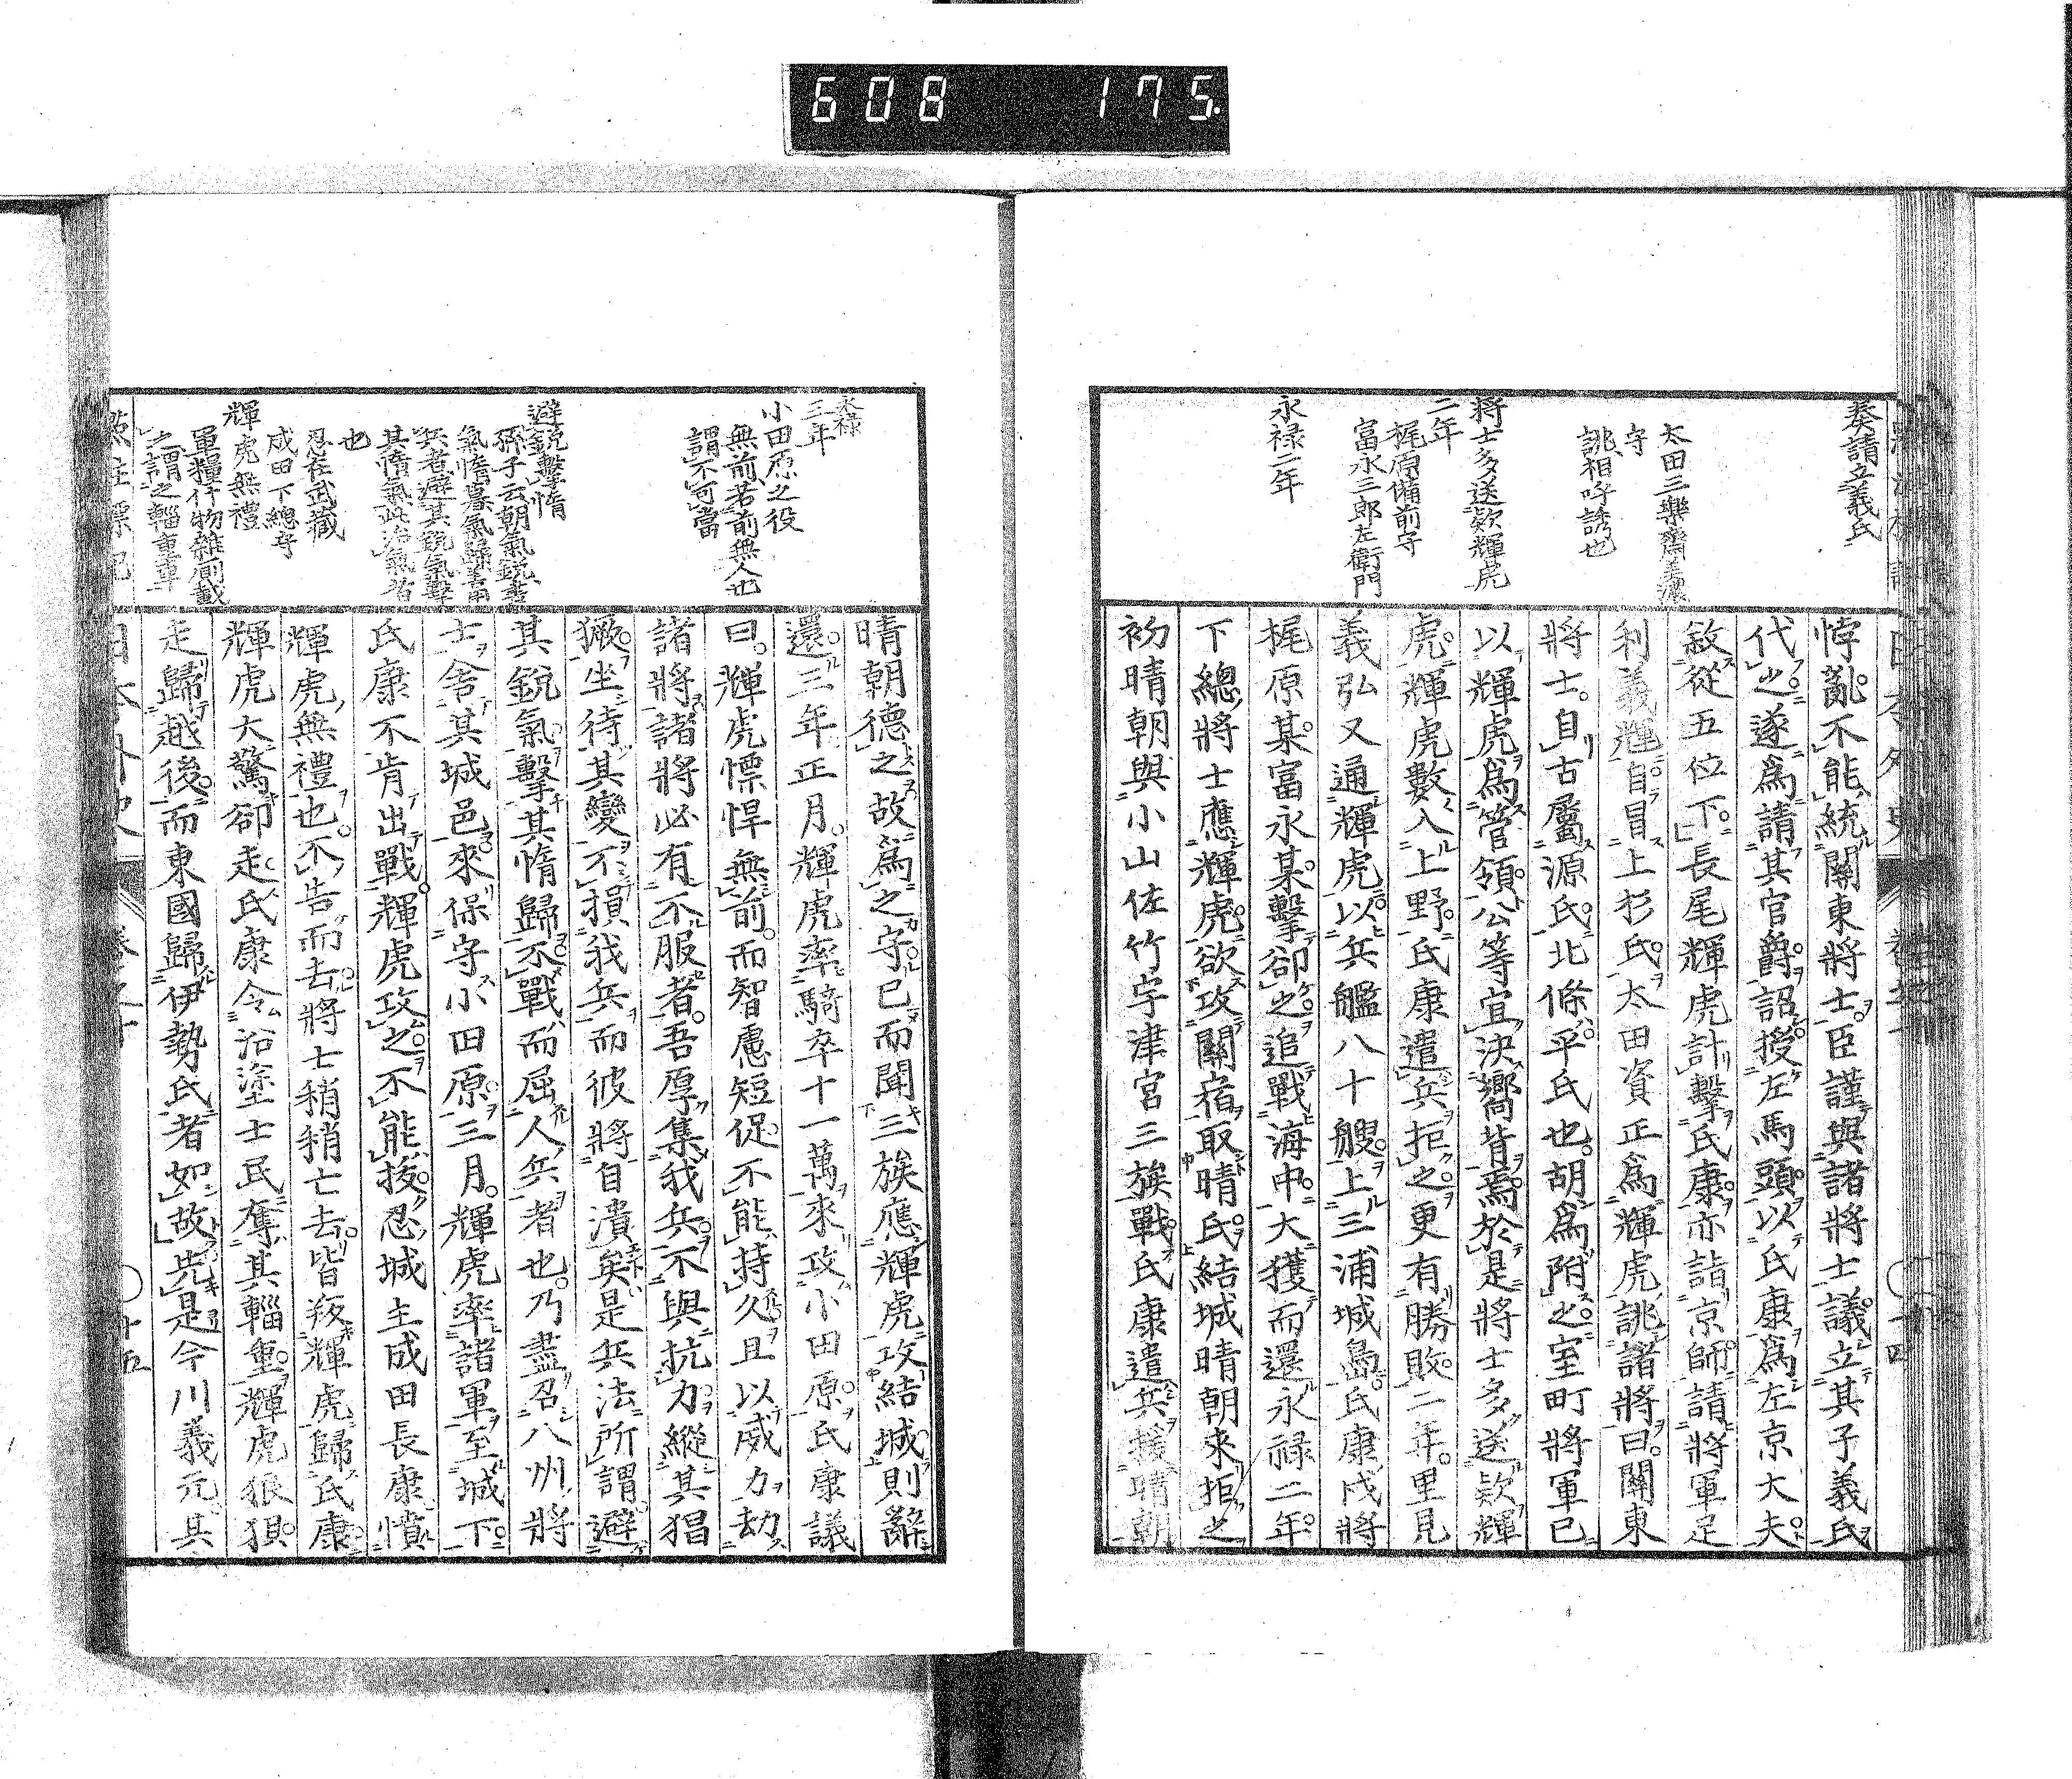 608 175
奏請立義氏
太田三樂齋美濃
守
誂相呼誘也
將士多送欵輝虎
二年
梶原備前守
富永三郎左衛門
永禄二年
悖亂不能統關東將士臣謹與諸將士議立其子義氏
代之遂爲請其官爵詔授左馬頭以氏康爲左京大夫
敘從五位下長尾輝虎計擊氏康亦詣京師請將軍足
利義輝自冒上杉氏太田資正爲輝虎誂諸將曰關東
將士自古屬源氏北條平氏也胡爲附之室町將軍已
以輝虎爲管領公等宜決嚮背焉於是將士多送欵輝
虎輝虎數入上野氏康遣兵拒之更有勝敗二年里見
義弘又通輝虎以兵艦八十艘上三浦城島氏康戍將
梶原某富永某擊卻之追戰海中大獲而還永禄二年
下總將士應輝虎欲攻關宿取晴氏結城晴朝來拒之
初晴朝與小山佐竹宇津宮三族戰氏康遣兵援晴朝
永禄
三年
小田原之役
無前若前無人也
謂不可當
避銳擊惰
孫子云朝氣銳晝
氣惰暮氣歸善用
兵者避其銳氣擊
其惰氣此治氣者
也
忍在武藏
成田下總守
輝虎無禮
軍糧什物雜廁載
之謂之輜重車
晴朝德之故爲之守已而聞三族應輝虎攻結城則辭
還三年正月輝虎率騎卒十一萬來攻小田原氏康議
曰輝虎慓悍無前而智慮短促不能持久且以威力劫
諸將諸將必有不服者吾厚集我兵不與抗力縱其猖
獗坐待其變不損我兵而彼將自潰矣是兵法所謂避
其銳氣擊其惰歸不戰而屈人兵者也乃盡召八州將
士舍其城邑來保守小田原三月輝虎率諸軍至城下
氏康不肯出戰輝虎攻之不能拔忍城主成田長康憤
輝虎無禮也不告而去將士稍稍亡去皆叛輝虎歸氏康
輝虎大驚卻走氏康令沿塗士民奪其輜重輝虎狼狽
走歸越後而東國歸伊勢氏者如故先是今川義元其
十五